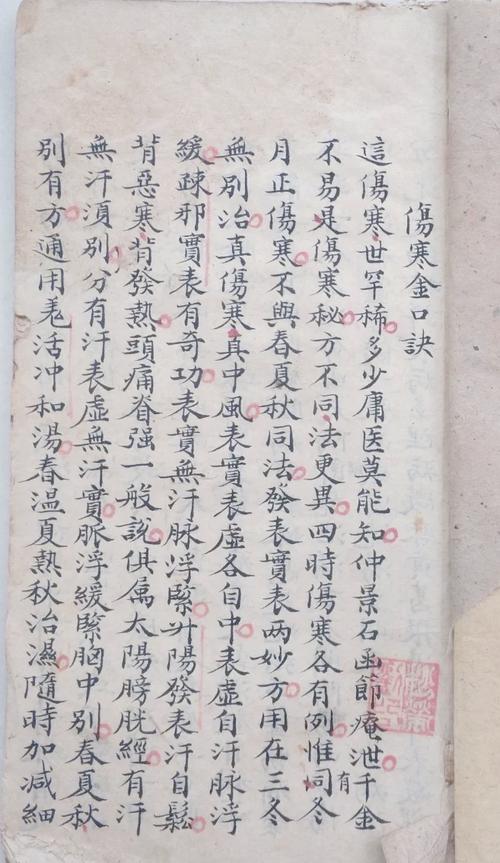 傷寒金口訣
這傷寒世罕稀多少庸医莫能知仲景石函節庵泄千金
不易是傷寒秘方不同法更異四時傷寒各有例惟有同冬
月正傷寒不與春夏秋同法發表實表两妙方用在三冬
無別治真傷寒真中風表實表虛各自中表虛自汗脉浮
緩疎邪實表有奇功表實無汗脉浮緊升陽發表汗自鬆
背惡寒背發熱頭痛脊强一般説俱属太陽膀胱經有汗
無汗湏別分有汗表虛無汗實脈浮緩緊胸中別春夏秋
別有方通用羗活冲和湯春温夏熱秋治濕隨時加减細